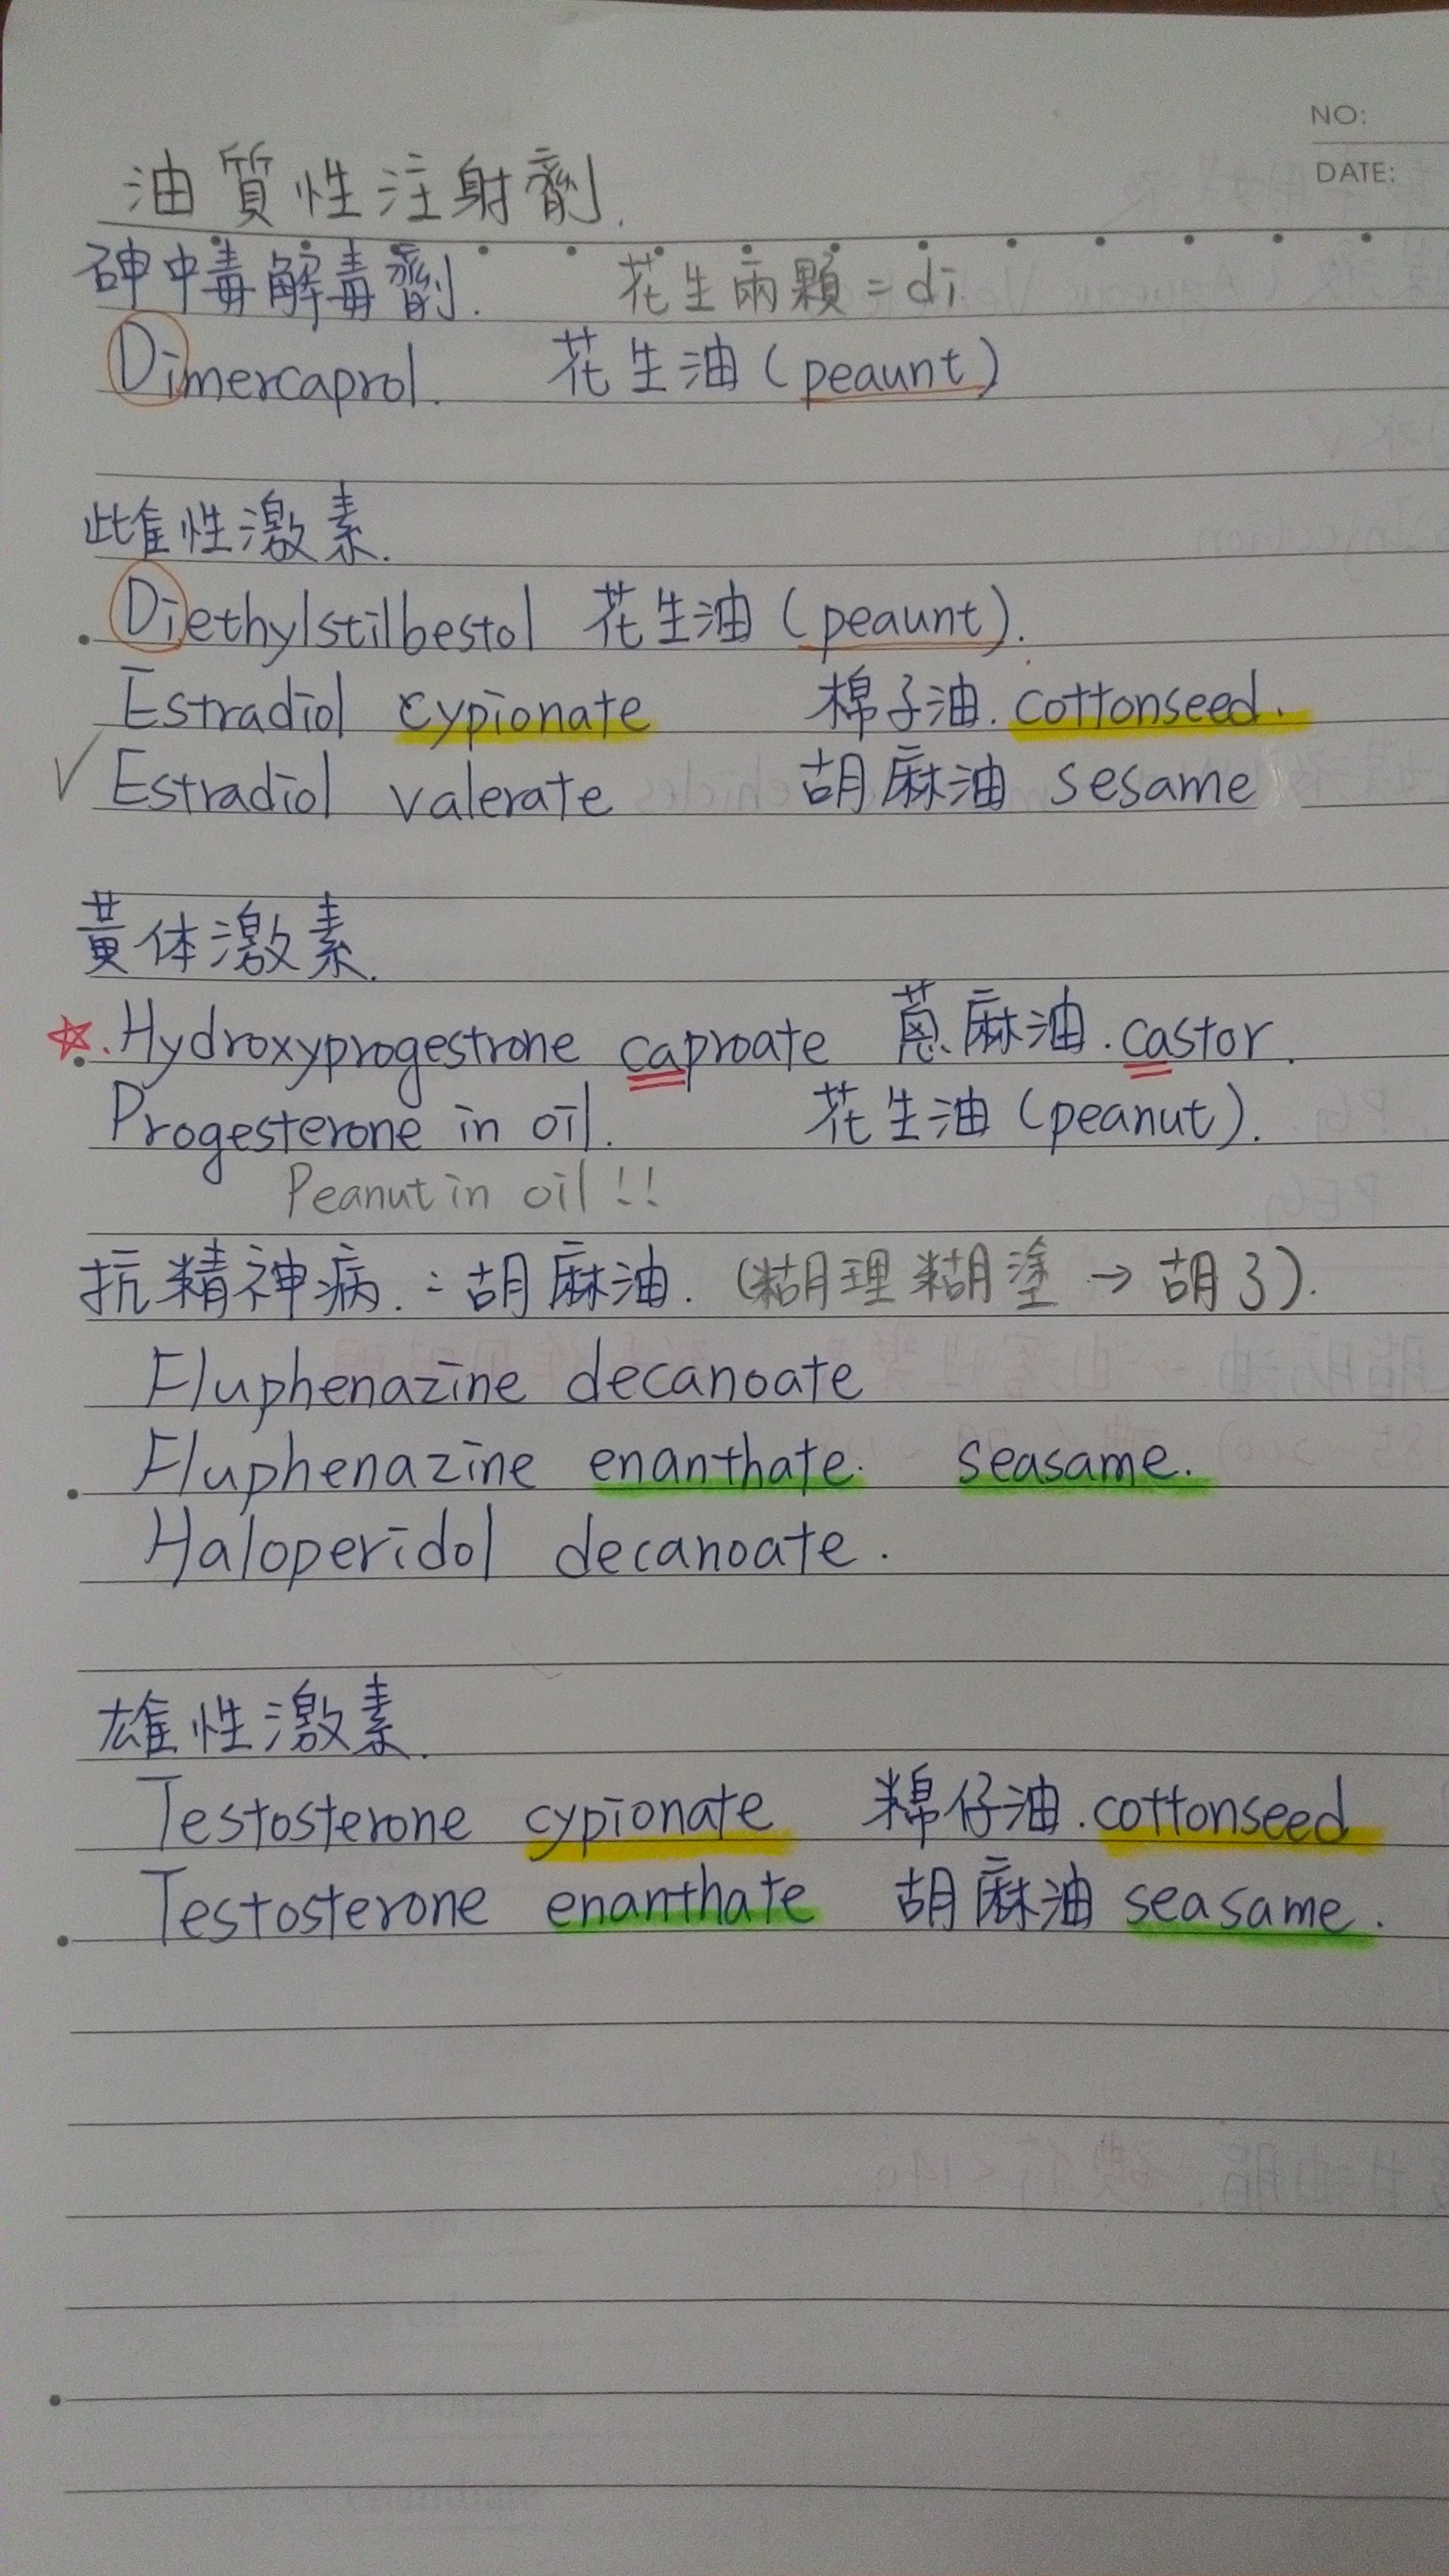 NO:
DATE:
油質性注射劑.
砷中毒解毒劑. 花生兩顆=di
Dimercaprol. 花生油(peaunt)
雌性激素.
Diethylstilbestol 花生油(peaunt).
Estradiol cypionate 棉子油.cottonseed.
✓Estradiol valerate 胡麻油 sesame
黃体激素.
☆.Hydroxyprogestrone caproate 蓖麻油.castor.
Progesterone in oil. 花生油(peanut).
Peanut in oil!!
抗精神病.:胡麻油.(糊理糊塗→胡了).
Fluphenazine decanoate
Fluphenazine enanthate. seasame.
Haloperidol decanoate.
雄性激素.
Testosterone cypionate 棉仔油.cottonseed
Testosterone enanthate 胡麻油 seasame.